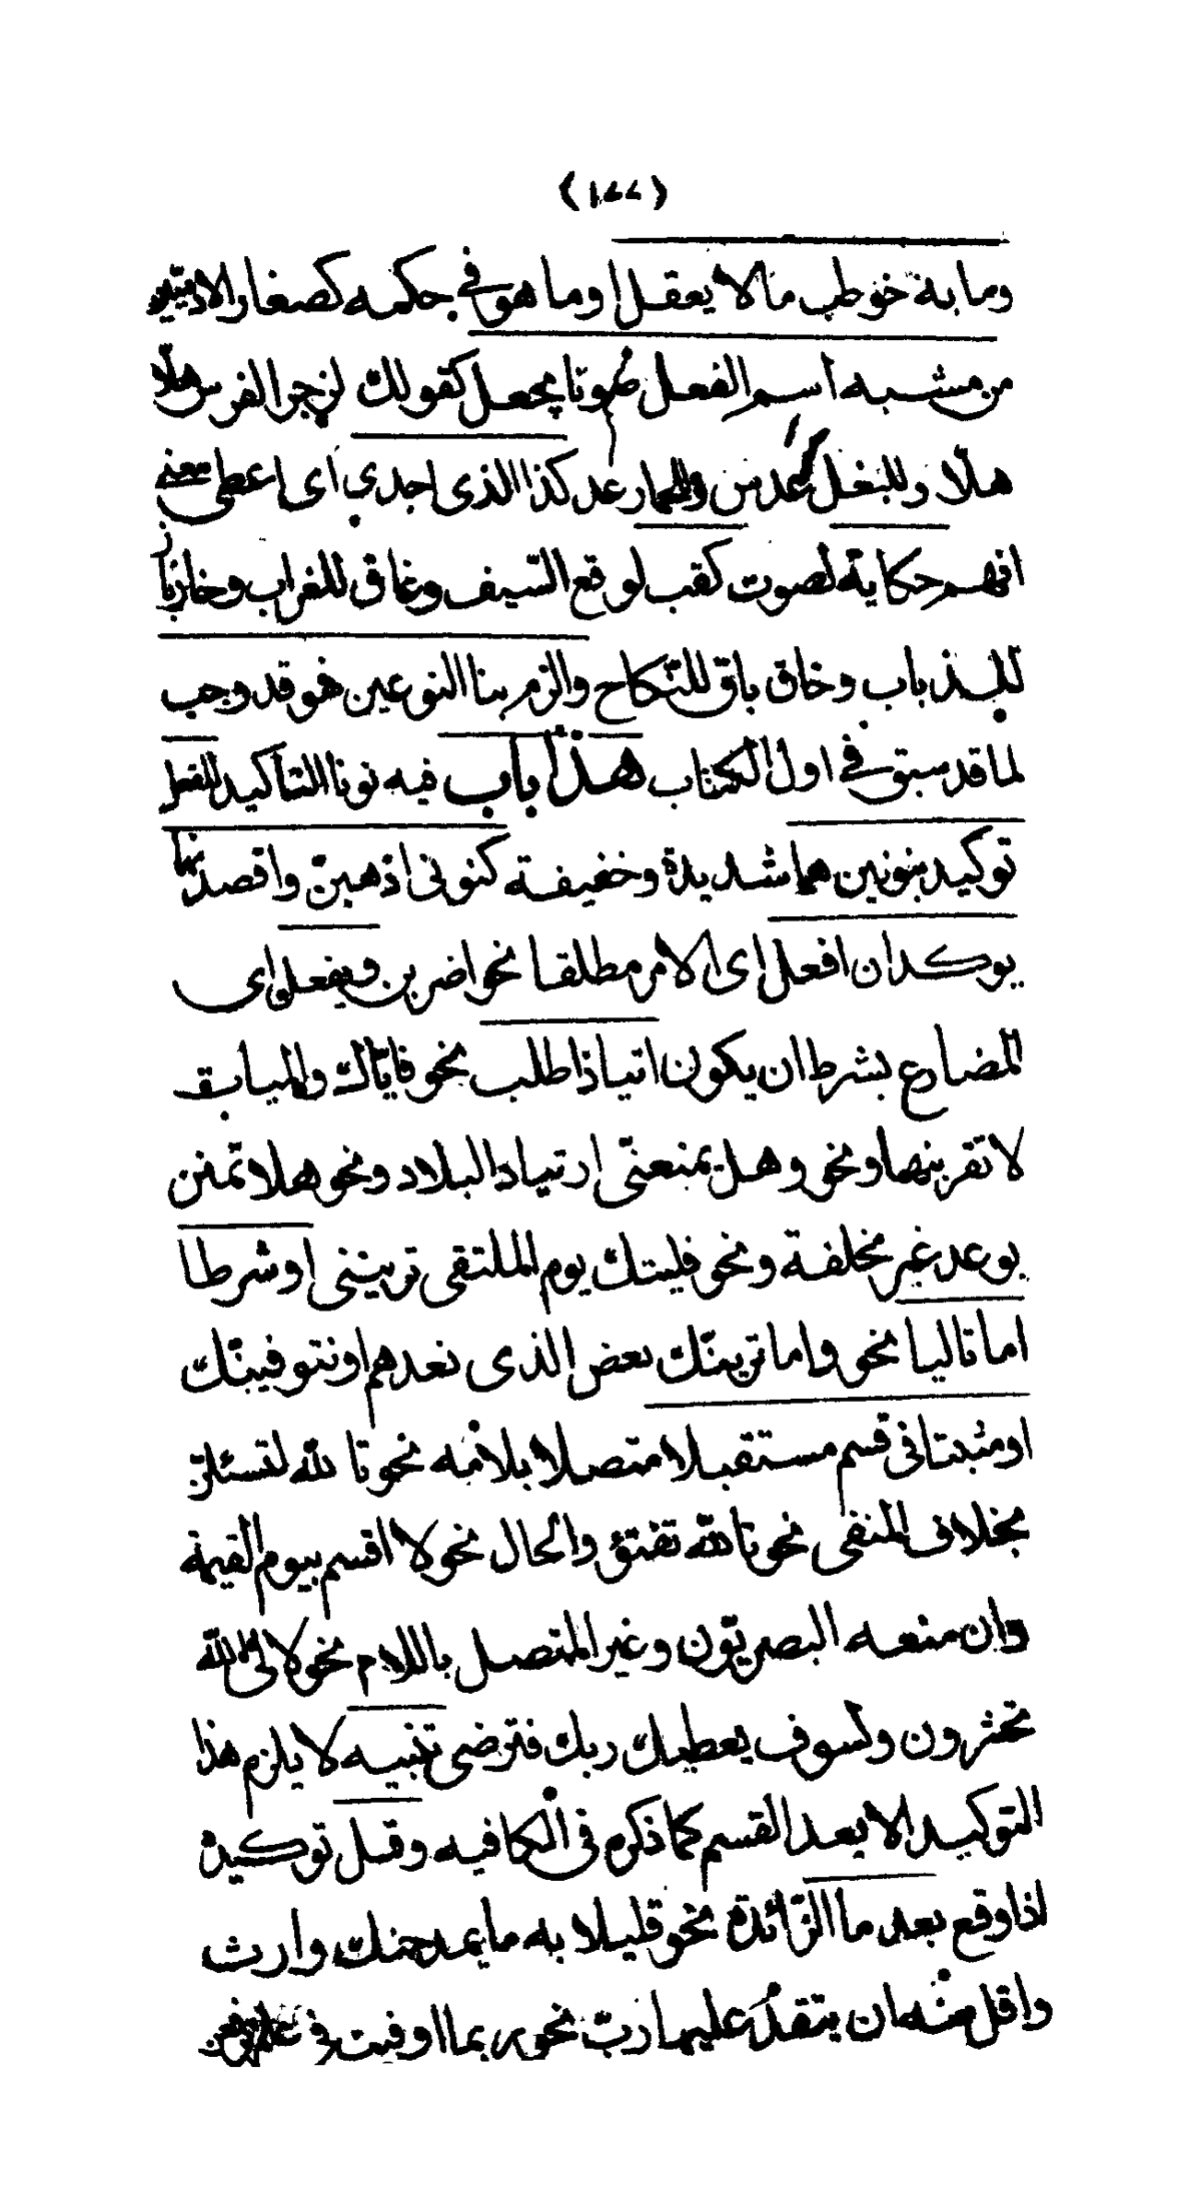 (١٧٧)
وما به خوطب ما لا يعقل او ما هو في حكمه كصغار الادميين
من مشبه اسم الفعل صوتا يجعل كقولك لزجر الفرس هلا
هلا وللبغل عدس وللحمار عد كذا الذى اجدى اى اعطى معنى
افهم حكاية لصوت كقب لوقع السيف وغاق للغراب وخازباز
للذباب وخاق باق للنكاح والزم بنا النوعين فهو قد وجب
لما قد سبق في اول الكتاب هذا باب فيه نونا التاكيد للفعل
توكيد بنونين هما شديدة وخفيفة كنونى اذهبنّ واقصدنهما
يوكدان افعل اى الامر مطلقا نحو اضربن ويفعل اى
المضارع بشرط ان يكون اتيا ذا طلب نحو فاياك والميتات
لا تقربنها ونحو وهل يمنعنّى ارتياد البلاد ونحو هلا تمنن
بوعد غير مخلفة ونحو فليتك يوم الملتقى ترينني او شرطا
اما تاليا نحو واما نرينّك بعض الذى نعدهم او نتوفينّك
او مثبتا فى قسم مستقبلا متصلا بلامه نحو تالله لتسئلن
بخلاف المنفى نحو تالله تفتؤ والحال نحو لا اقسم بيوم القيمة
وان منعه البصريّون وغير المتصل باللام نحو لالى الله
تحشرون ولسوف يعطيك ربك فترضى تنبيه لا يلزم هذا
التوكيد الا بعد القسم كما ذكره فى الكافيه وقل توكيده
اذا وقع بعد ما الزّائدة نحو قليلا به ما يمدحنك وارث
واقل منه ان يتقدّم عليها ربّ نحو ربما اوفيت فى علم ترفعن